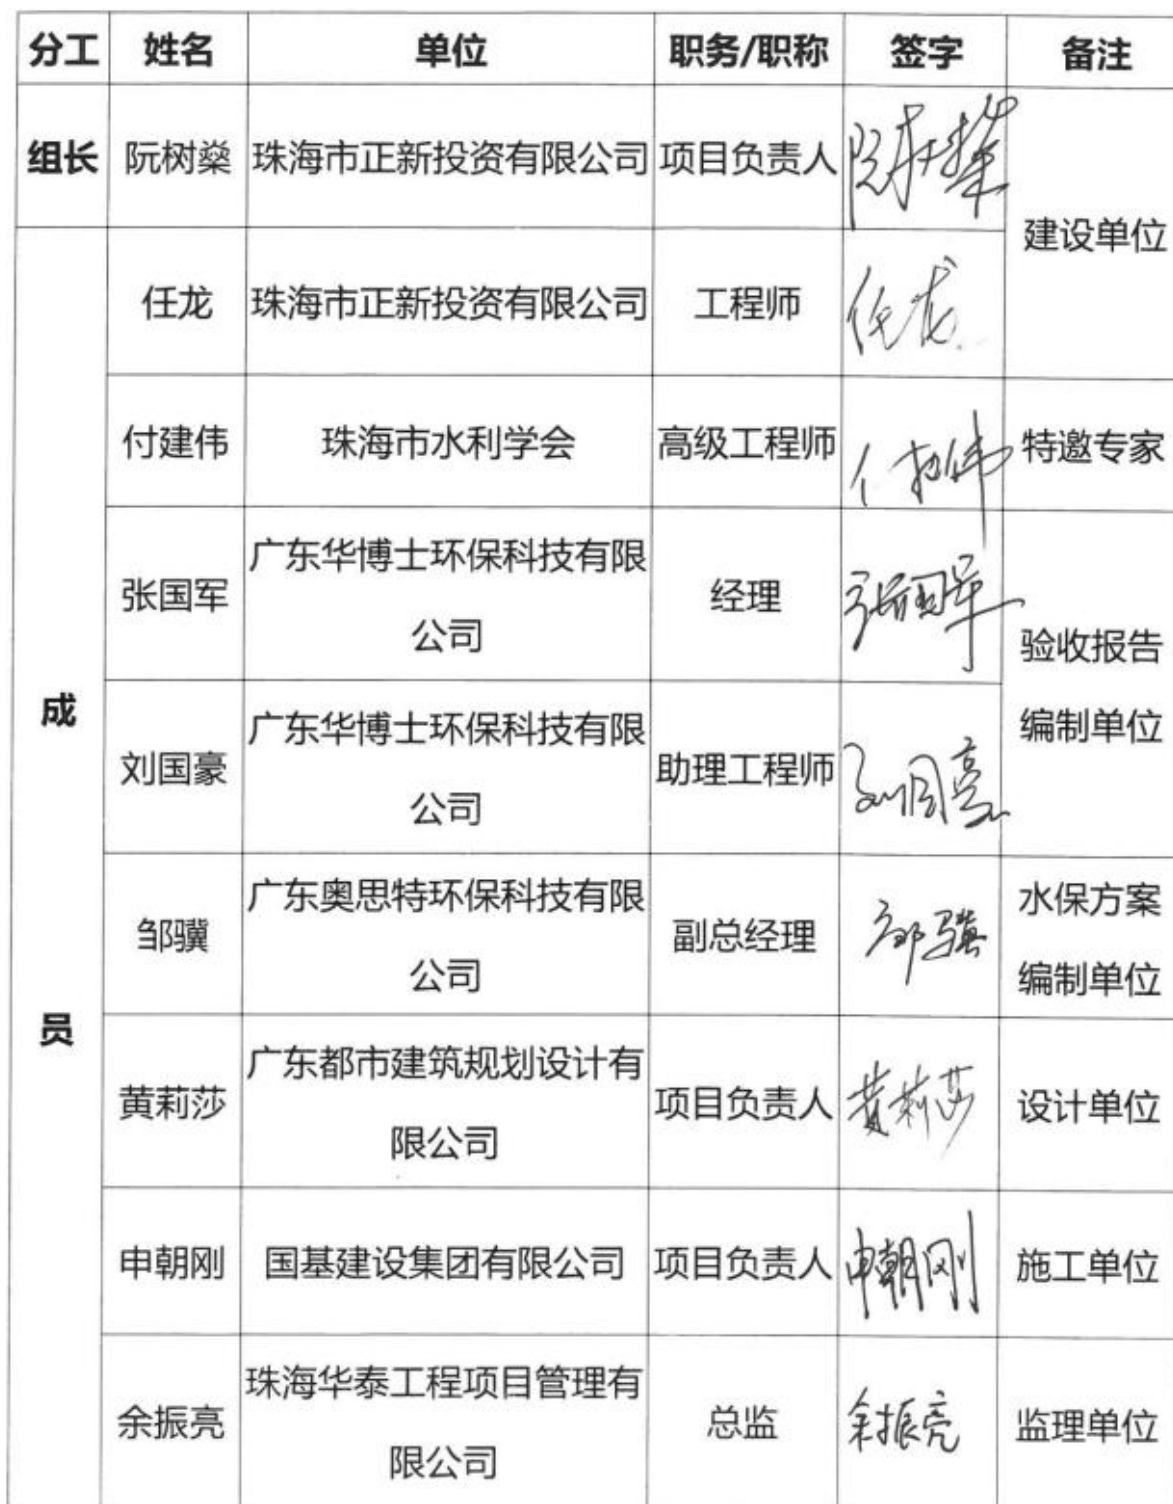 分工 姓名 单位 职务/职称 签字 备注
组长 阮树燊 珠海市正新投资有限公司 项目负责人 阮树燊 建设单位
任龙 珠海市正新投资有限公司 工程师 任龙
付建伟 珠海市水利学会 高级工程师 付建伟 特邀专家
张国军 广东华博士环保科技有限
公司 经理 张国军 验收报告
编制单位
成
员
刘国豪 广东华博士环保科技有限
公司 助理工程师 刘国豪
邹骥 广东奥思特环保科技有限
公司 副总经理 邹骥 水保方案
编制单位
黄莉莎 广东都市建筑规划设计有
限公司 项目负责人 黄莉莎 设计单位
申朝刚 国基建设集团有限公司 项目负责人 申朝刚 施工单位
余振亮 珠海华泰工程项目管理有
限公司 总监 余振亮 监理单位